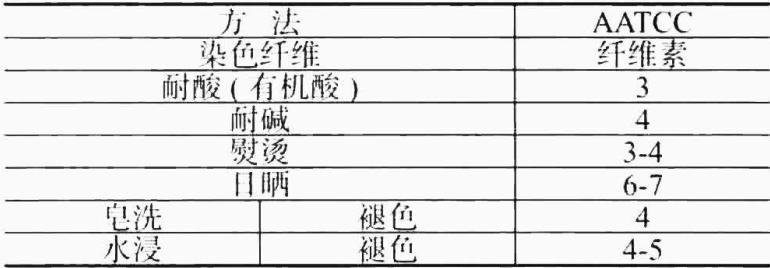 方 法 AATCC
染色纤维 纤维素
耐酸(有机酸) 3
耐碱 4
熨烫 3-4
日晒 6-7
皂洗 褪色 4
水浸 褪色 4-5